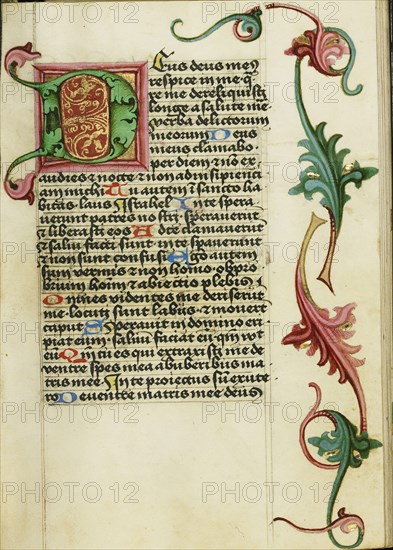 Deus deus meus
respice in me q̄
re me dereliquisti
longe a salute me
verba delictorum
meorum Deus
meus clamabo
per diem & nō ex
audies & nocte & non ad insipienci
am michi Tu autem ī sancto ha
bitas laus Israhel In te spera
verunt patres nostri speraverūt
& liberasti eos Ad te clamaverūt
& salvi facti sunt in te speraverunt
& non sunt confusi Ego autem
sum vermis & non homo obpro
brium hominū & abiectio plebis
Omnes videntes me deriserūt
me locuti sunt labiis & moverūt
caput Speravit in domino eri
piat eum salvū faciat eū qm̄ vult
eū Qm̄ tu es qui extraxisti me de
ventre spes mea ab uberibus ma
tris mee In te proiectus sū ex ute
ro De ventre matris mee deus
PHOTO 12